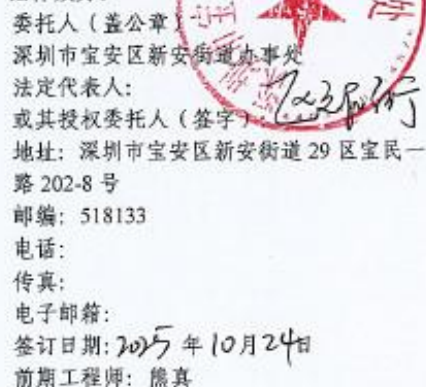 委托人（盖公章）
深圳市宝安区新安街道办事处
法定代表人：
或其授权委托人（签字）：
地址：深圳市宝安区新安街道 29 区宝民一
路 202-8 号
邮编：518133
电话：
传真：
电子邮箱：
签订日期：2025 年 10 月 24 日
前期工程师：熊真